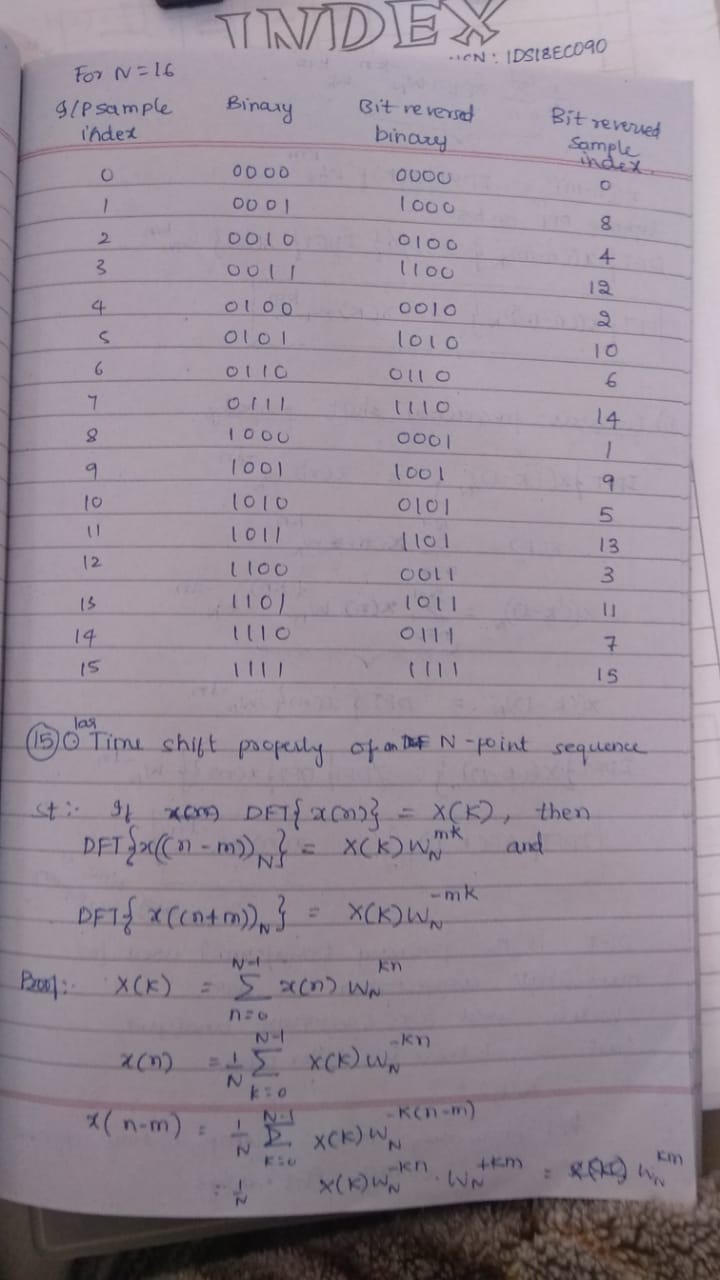 INDEX
N: 1DS18EC090
For N=16
I/P sample index Binary Bit reversed binary Bit reversed sample index.
0 0000 0000 0
1 0001 1000 8
2 0010 0100 4
3 0011 1100 12
4 0100 0010 2
5 0101 1010 10
6 0110 0110 6
7 0111 1110 14
8 1000 0001 1
9 1001 1001 9
10 1010 0101 5
11 1011 1101 13
12 1100 0011 3
13 1101 1011 11
14 1110 0111 7
15 1111 1111 15
(15) Time shift property of an N-point sequence
St:- If DFT{x(n)} = X(K), then
DFT{x((n-m))_N} = X(K) W_N^mk and
DFT{x((n+m))_N} = X(K) W_N^-mk
Proof:- X(K) = Σ_{n=0}^{N-1} x(n) W_N^kn
x(n) = 1/N Σ_{k=0}^{N-1} X(K) W_N^-kn
x(n-m) = 1/N Σ_{k=0}^{N-1} X(K) W_N^-k(n-m)
= 1/N X(K) W_N^-kn . W_N^+km = W_N^km